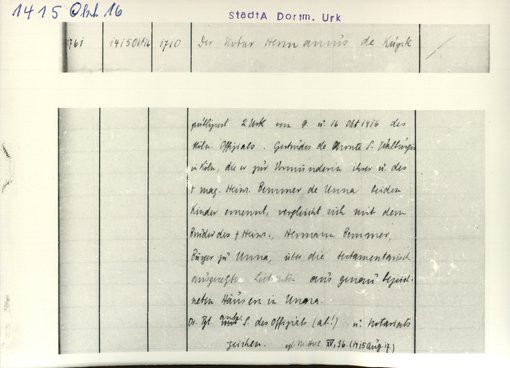 1415 Okt. 16
StadtA Dortm. Urk
1761 1415 Okt 16 1710 Der Notar Hermannus de
publiziert 2 Urk vom 9 u. 16 Okt 1416 des
Köln. Offizials. Gertrudes de Monte S. Walburgis
in Köln, die er zur Vormünderin ihrer u. des
† mag. Heinr. Demmer de Unna beiden
Kinder ernennt, vergleicht sich mit dem
Bruder des † Heinr., Hermann Demmer,
Bürger zu Unna, über die testamentarisch
ausgesetzten aus genau bezeich-
neten Häusern in Unna.
Or. Pgt. anhg. S. des Offizials (ab!) u. Notariats
zeichen. vgl. Mitt. XV, 36 (1415 Aug. 17)